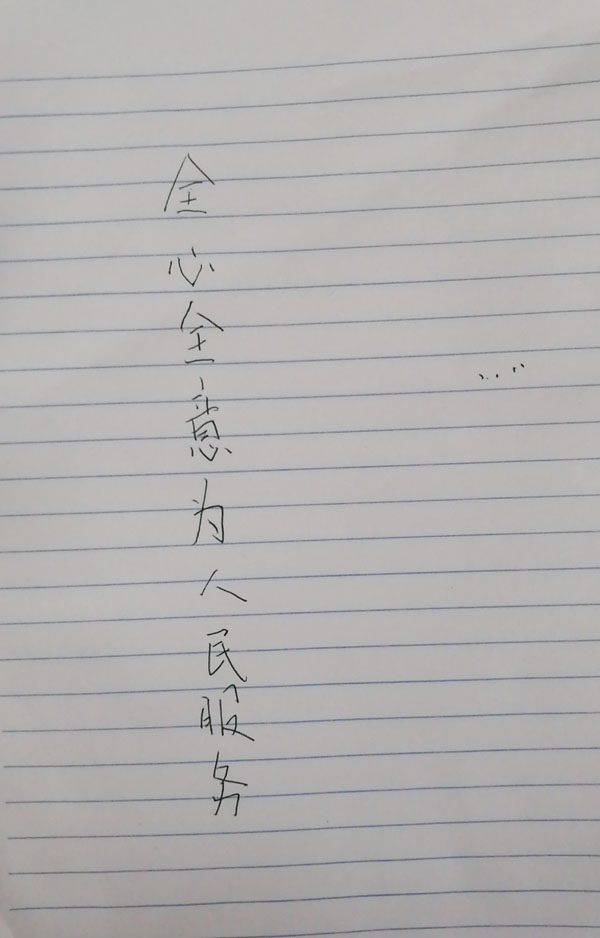 全心全意为人民服务